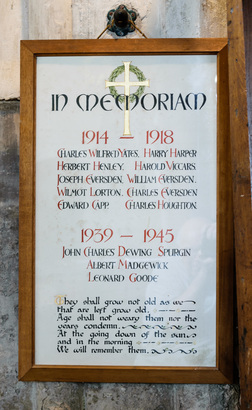 IN MEMORIAM
1914 — 1918
CHARLES WILFRED YATES. HARRY HARPER
HERBERT HENLEY. HAROLD VICCARS.
JOSEPH EVERSDEN. WILLIAM EVERSDEN.
WILMOT LORTON. CHARLES EVERSDEN
EDWARD CAPP. CHARLES HOUGHTON.
1939 — 1945
JOHN CHARLES DEWING SPURGIN
ALBERT MADGEWICK
LEONARD GOODE
They shall grow not old as we
that are left grow old.
Age shall not weary them nor the
years condemn.
At the going down of the sun
and in the morning
We will remember them.